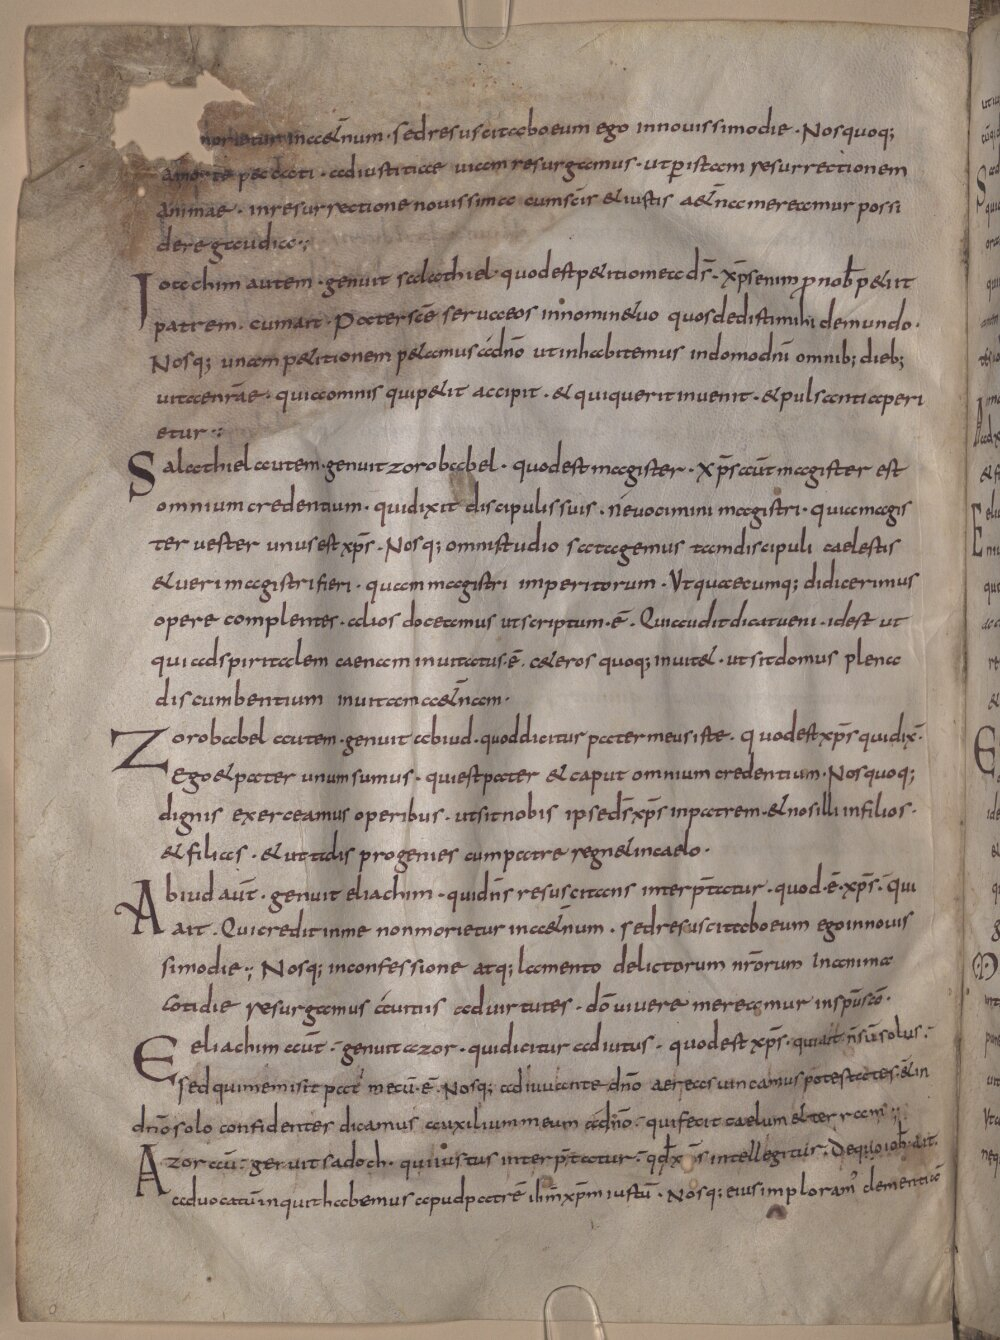 morietur in aet̄num · sed resuscitabo eum ego in novissimo die · Nos quoq;
a morte peccati · ad iustitiae viam resurgamus · ut p istam resurrectionem
animae · in resurrectione novissima cum sc̄is et iustis aet̄na mereamur possi
dere gaudia ·;
Joachim autem · genuit salathiel · quod est petitio mea ds̄ · xp̄s enim p nob̄ petiit
patrem · cum ait · Pater sc̄e serva eos in nomine tuo quos dedisti mihi de mundo ·
Nosq; unam petitionem petamus a dn̄o ut inhabitemus in domo dn̄i omnib; dieb;
vitae nr̄ae · quia omnis qui petit accipit · et qui querit invenit · et pulsanti aperi
etur ·:
Salathiel autem · genuit zorobabel · quod est magister · xp̄s aūt magister est
omnium credentium · qui dixit discipulis suis · ne vocimini magistri · quia magis
ter vester unus est xp̄s · Nosq; omni studio satagemus tam discipuli caelestis
et veri magistri fieri · quam magistri imperitorum · Ut quaecumq; didicerimus
opere complentes · alios doceamus ut scriptum · ē · Qui audit dicat veni · id est ut
qui ad spiritalem caenam invitatus · ē · ceteros quoq; invitet · ut sit domus plena
discumbentium invitam aet̄nam ·
Zorobabel autem · genuit abiud · quod dicitur pater meus iste · quod est xp̄s qui dix̄ ·
Ego et pater unum sumus · qui est pater et caput omnium credentium · Nos quoq;
dignis exerceamus operibus · ut sit nobis ipse ds̄ xp̄s in patrem · et nos illi in filios ·
et filias · et ut talis progenies cum patre regnet in caelo ·
Abiud aūt · genuit eliachim · qui dn̄s resuscitans interp̄tatur · quod · ē · xp̄s · qui
ait · Qui credit in me non morietur in aet̄num · sed resuscitabo eum ego in novis
simo die ·; Nosq; in confessione atq; lamento delictorum nr̄orum in anima
cotidie resurgamus a vitiis ad virtutes · dō vivere mereamur in sp̄u scō ·
Eeliachim aūt · genuit azor · qui dicitur adiutus · quod est xp̄s · qui ait n̄ sū solus ·
sed qui me misit pat̄ mecū · ē · Nosq; adiuvante dn̄o aereas vincamus potestates · et in
dn̄o solo confidenter dicamus auxilium meum a dn̄o · qui fecit caelum et terram ·;
Azor aū · genuit sadoch · qui iustus interp̄tatur · qd̄ xp̄s intellegitur · De quo ioh̄ ait ·
advocatū inquit habemus apud patrē ih̄m xp̄m iustū · Nosq; eius imploram' clementiā